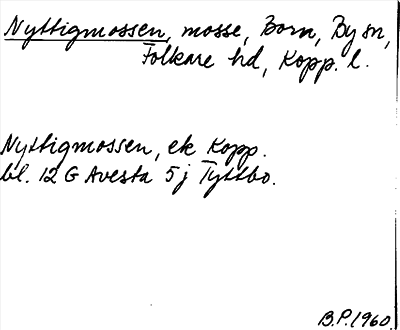 Nyttigmossen, mosse, Born, By sn,
Folkare hd, Kopp. l.
Nyttigmossen, ek Kopp.
bl. 12 G Avesta 5 j Tyttbo.
B.P. 1960